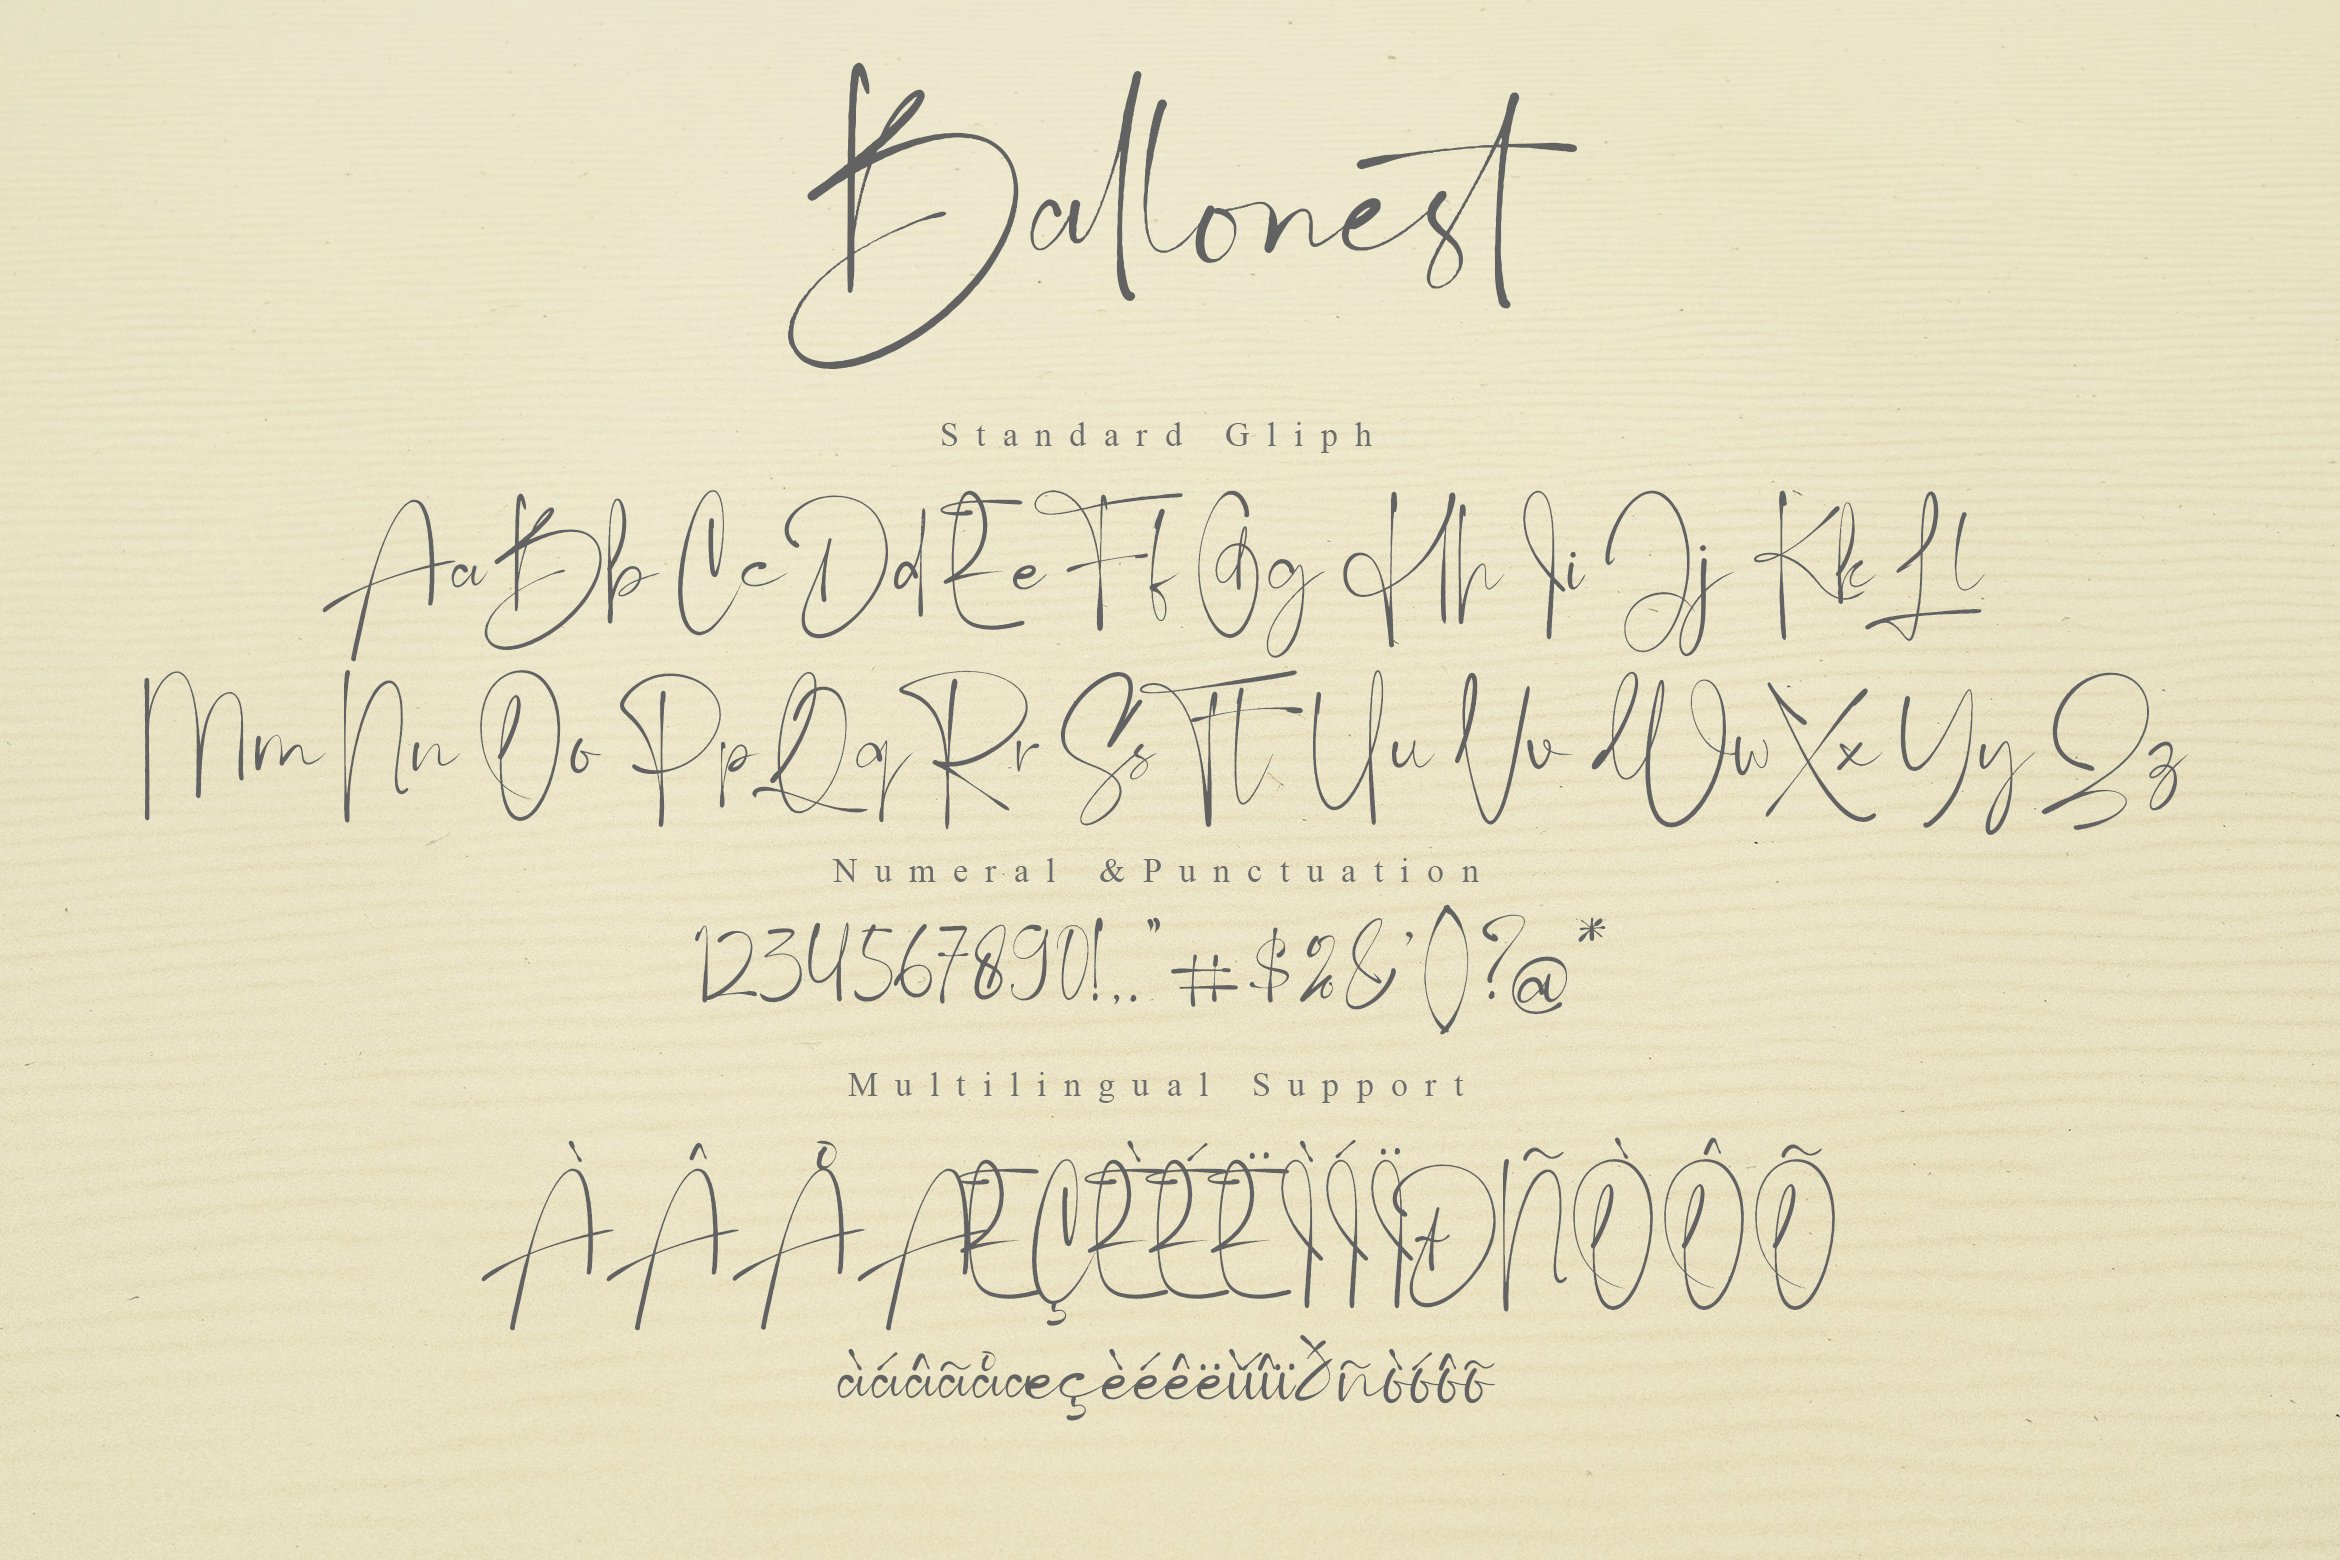 Ballonest
Standard Gliph
Aa Bb Cc Dd Ee Ff Gg Hh Ii Jj Kk Ll
Mm Nn Oo Pp Qq Rr Ss Tt Uu Vv Ww Xx Yy Zz
Numeral &Punctuation
1234567890!,."#$%&'()?@*
Multilingual Support
ÀÂÅÆÇÈÉËÌÍÏÐÑÒÔÕ
àáâãåæçèéêëìíîïðñòóôõ